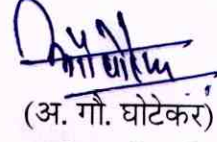 (अ. गौ. घोटेकर)